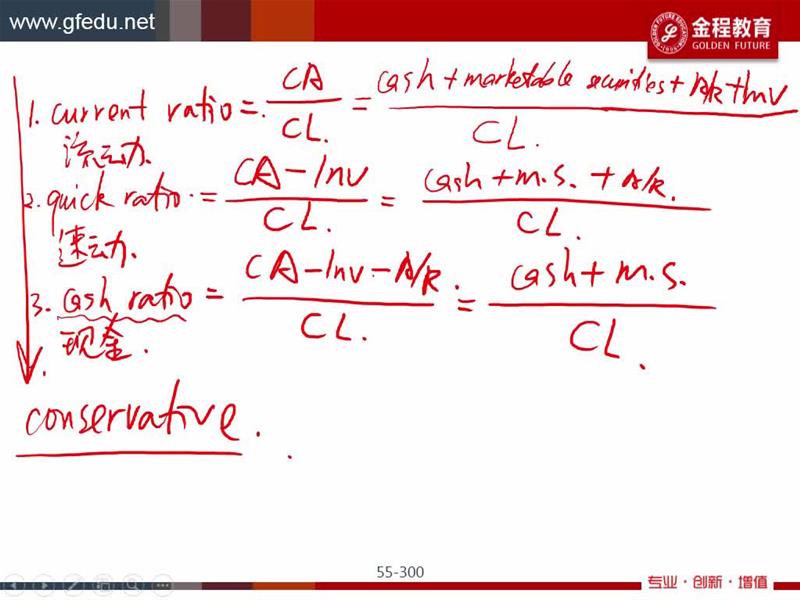 www.gfedu.net
金程教育
GOLDEN FUTURE
1. current ratio = CA / CL. = cash + marketable securities + A/R + Inv / CL.
流动
2. quick ratio = CA - Inv / CL. = cash + m.s. + A/R. / CL.
速动.
3. cash ratio = CA - Inv - A/R. / CL. = cash + m.s. / CL.
现金.
conservative.
55-300
专业·创新·增值